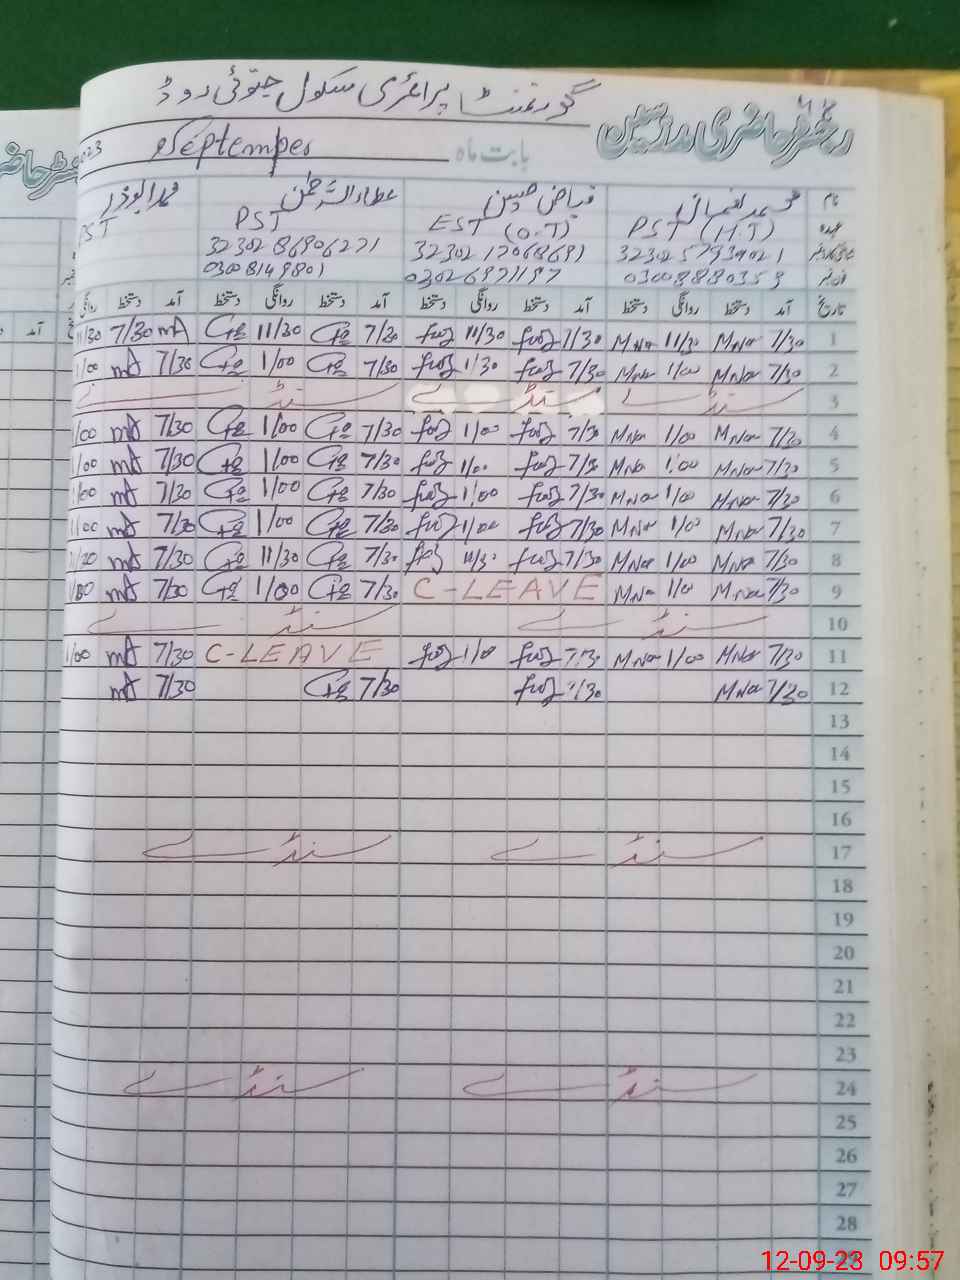 گورنمنٹ پرائمری سکول جتوئی روڈ
رجسٹر حاضری مدرسین
بابت ماہ Septemper 2023
نام محمد لقمان فیاض حسین عطاء الرحمٰن محمد ابوذر
عہدہ PST (H.T) EST (O.T) PST PST
32302 8690627 1
03008149801
03026971197
03008880359
تاریخ آمد دستخط روانگی دستخط آمد دستخط روانگی دستخط آمد دستخط روانگی دستخط آمد دستخط روانگی
1 7/30 MNa 11/30 MNa 7/30 11/30 7/30 11/30 7/30 mA 11/30
2 7/30 MNa 1/00 MNa 7/30 1/30 7/30 1/00 7/30 mA 1/00
3 سنڈے سنڈے سنڈے
4 7/30 MNa 1/00 MNa 7/30 1/00 7/30 1/00 7/30 mA 1/00
5 7/30 MNa 1/00 MNa 7/30 1/00 7/30 1/00 7/30 mA 1/00
6 7/30 MNa 1/00 MNa 7/30 1/00 7/30 1/00 7/30 mA 1/00
7 7/30 MNa 1/00 MNa 7/30 1/00 7/30 1/00 7/30 mA 1/00
8 7/30 MNa 1/00 MNa 7/30 11/30 7/30 11/30 7/30 mA
9 7/30 MNa 1/00 MNa C-LEAVE 7/30 1/00 7/30 mA 1/00
10 سنڈے سنڈے
11 7/30 MNa 1/00 MNa 7/30 1/00 C-LEAVE 7/30 mA 1/00
12 7/30 MNa 7/30 7/30 7/30 mA
13
14
15
16
17 سنڈے سنڈے
18
19
20
21
22
23
24 سنڈے سنڈے
25
26
27
28
29
12-09-23 09:57